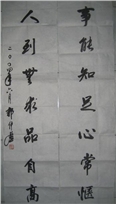 事能知足心常惬
人到无求品自高
二〇〇年六月